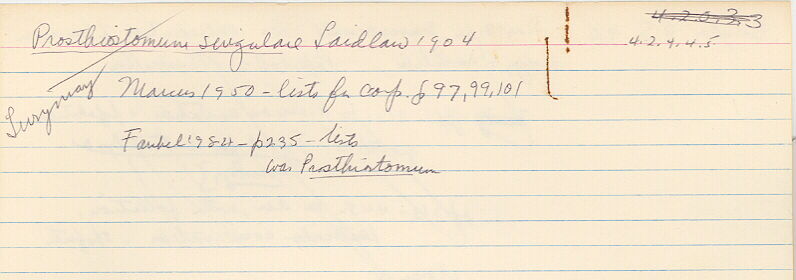 4.2.0.3.3
Prosthiostomum singulare Laidlaw 1904
4.2.4.4.5
Lurymare
Marcus 1950 - lists for comp. p 97,99,101
Faubel 1984 - p235 - lists
was Prosthiostomum